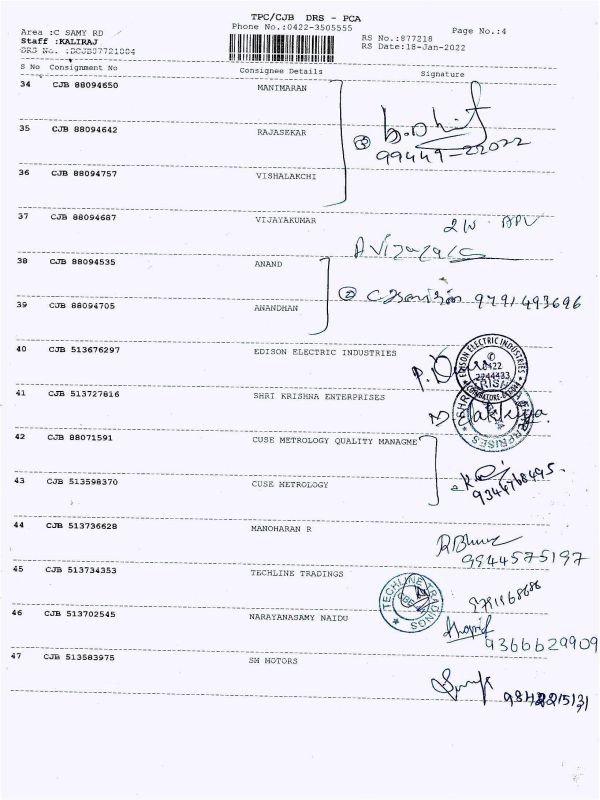 TPC/CJB DRS - PCA
Area :C SAMY RD
Phone No.:0422-3505555
Page No.:4
Staff :KALIRAJ
RS No.:877218
DRS No. :DCJB87721804
RS Date:18-Jan-2022
S No Consignment No Consignee Details Signature
34 CJB 88094650 MANIMARAN
35 CJB 88094642 RAJASEKAR
99449-22022
36 CJB 88094757 VISHALAKCHI
37 CJB 88094687 VIJAYAKUMAR
38 CJB 88094535 ANAND
② 9791493696
39 CJB 88094705 ANANDHAN
40 CJB 513676297 EDISON ELECTRIC INDUSTRIES
EDISON ELECTRIC INDUSTRIES
0422
2244433
41 CJB 513727816 SHRI KRISHNA ENTERPRISES
42 CJB 88071591 CUSE METROLOGY QUALITY MANAGME
43 CJB 513598370 CUSE METROLOGY
9344768495.
44 CJB 513736628 MANOHARAN R
9944575197
45 CJB 513734353 TECHLINE TRADINGS
TECHLINE TRADINGS
46 CJB 513702545 NARAYANASAMY NAIDU
9366629909
47 CJB 513583975 SM MOTORS